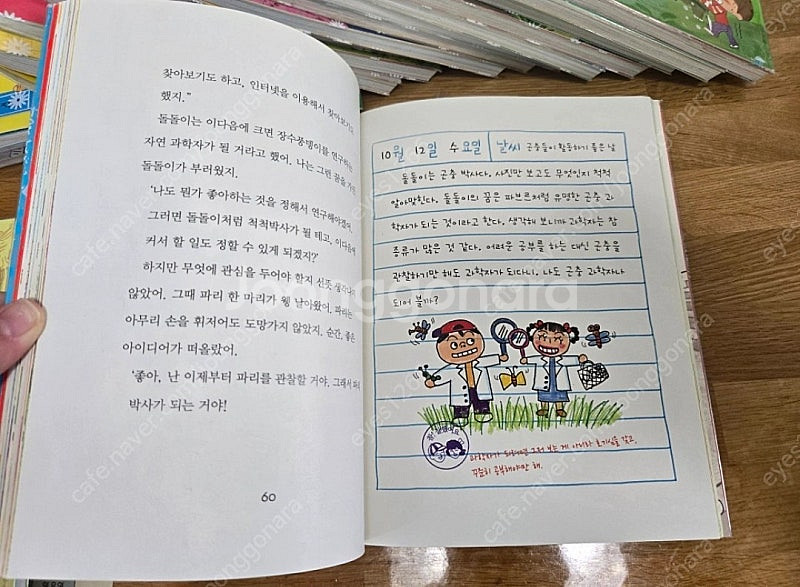 찾아보기도 하고, 인터넷을 이용해서 찾아보기도
했지.”
돌돌이는 이다음에 크면 장수풍뎅이를 연구하는
자연 과학자가 될 거라고 했어. 나는 그런 꿈을 가진
돌돌이가 부러웠지.
‘나도 뭔가 좋아하는 것을 정해서 연구해야겠어.
그러면 돌돌이처럼 척척박사가 될 테고, 이다음에
커서 할 일도 정할 수 있게 되겠지?’
하지만 무엇에 관심을 두어야 할지 선뜻 생각나지
않았어. 그때 파리 한 마리가 웽 날아왔어. 파리는
아무리 손을 휘저어도 도망가지 않았지. 순간, 좋은
아이디어가 떠올랐어.
‘좋아, 난 이제부터 파리를 관찰할 거야. 그래서 파리
박사가 되는 거야!
60
10월 12일 수요일 날씨 곤충들이 활동하기 좋은 날
돌돌이는 곤충 박사다. 사진만 보고도 무엇인지 척척
알아맞힌다. 돌돌이의 꿈은 파브르처럼 유명한 곤충 과
학자가 되는 것이라고 한다. 생각해 보니까 과학자는 참
종류가 많은 것 같다. 어려운 공부를 하는 대신 곤충을
관찰하기만 해도 과학자가 되다니, 나도 곤충 과학자나
되어 볼까?
과학자가 되려면 그저 보는 게 아니라 호기심을 갖고,
꾸준히 공부해야만 해.
joonggonara
cafe.naver.com/joonggonara